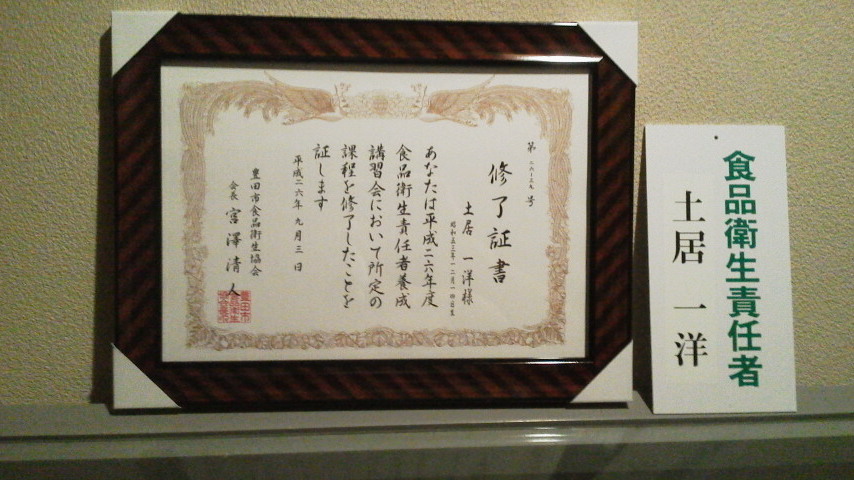 第二六-一三九号
修了証書
土居 一洋様
昭和五三年一二月一四日生
あなたは平成二六年度
食品衛生責任者養成
講習会において所定の
課程を修了したことを
証します
平成二六年 九月 三 日
豊田市食品衛生協会
会長 宮澤清人
食品衛生責任者
土居 一洋